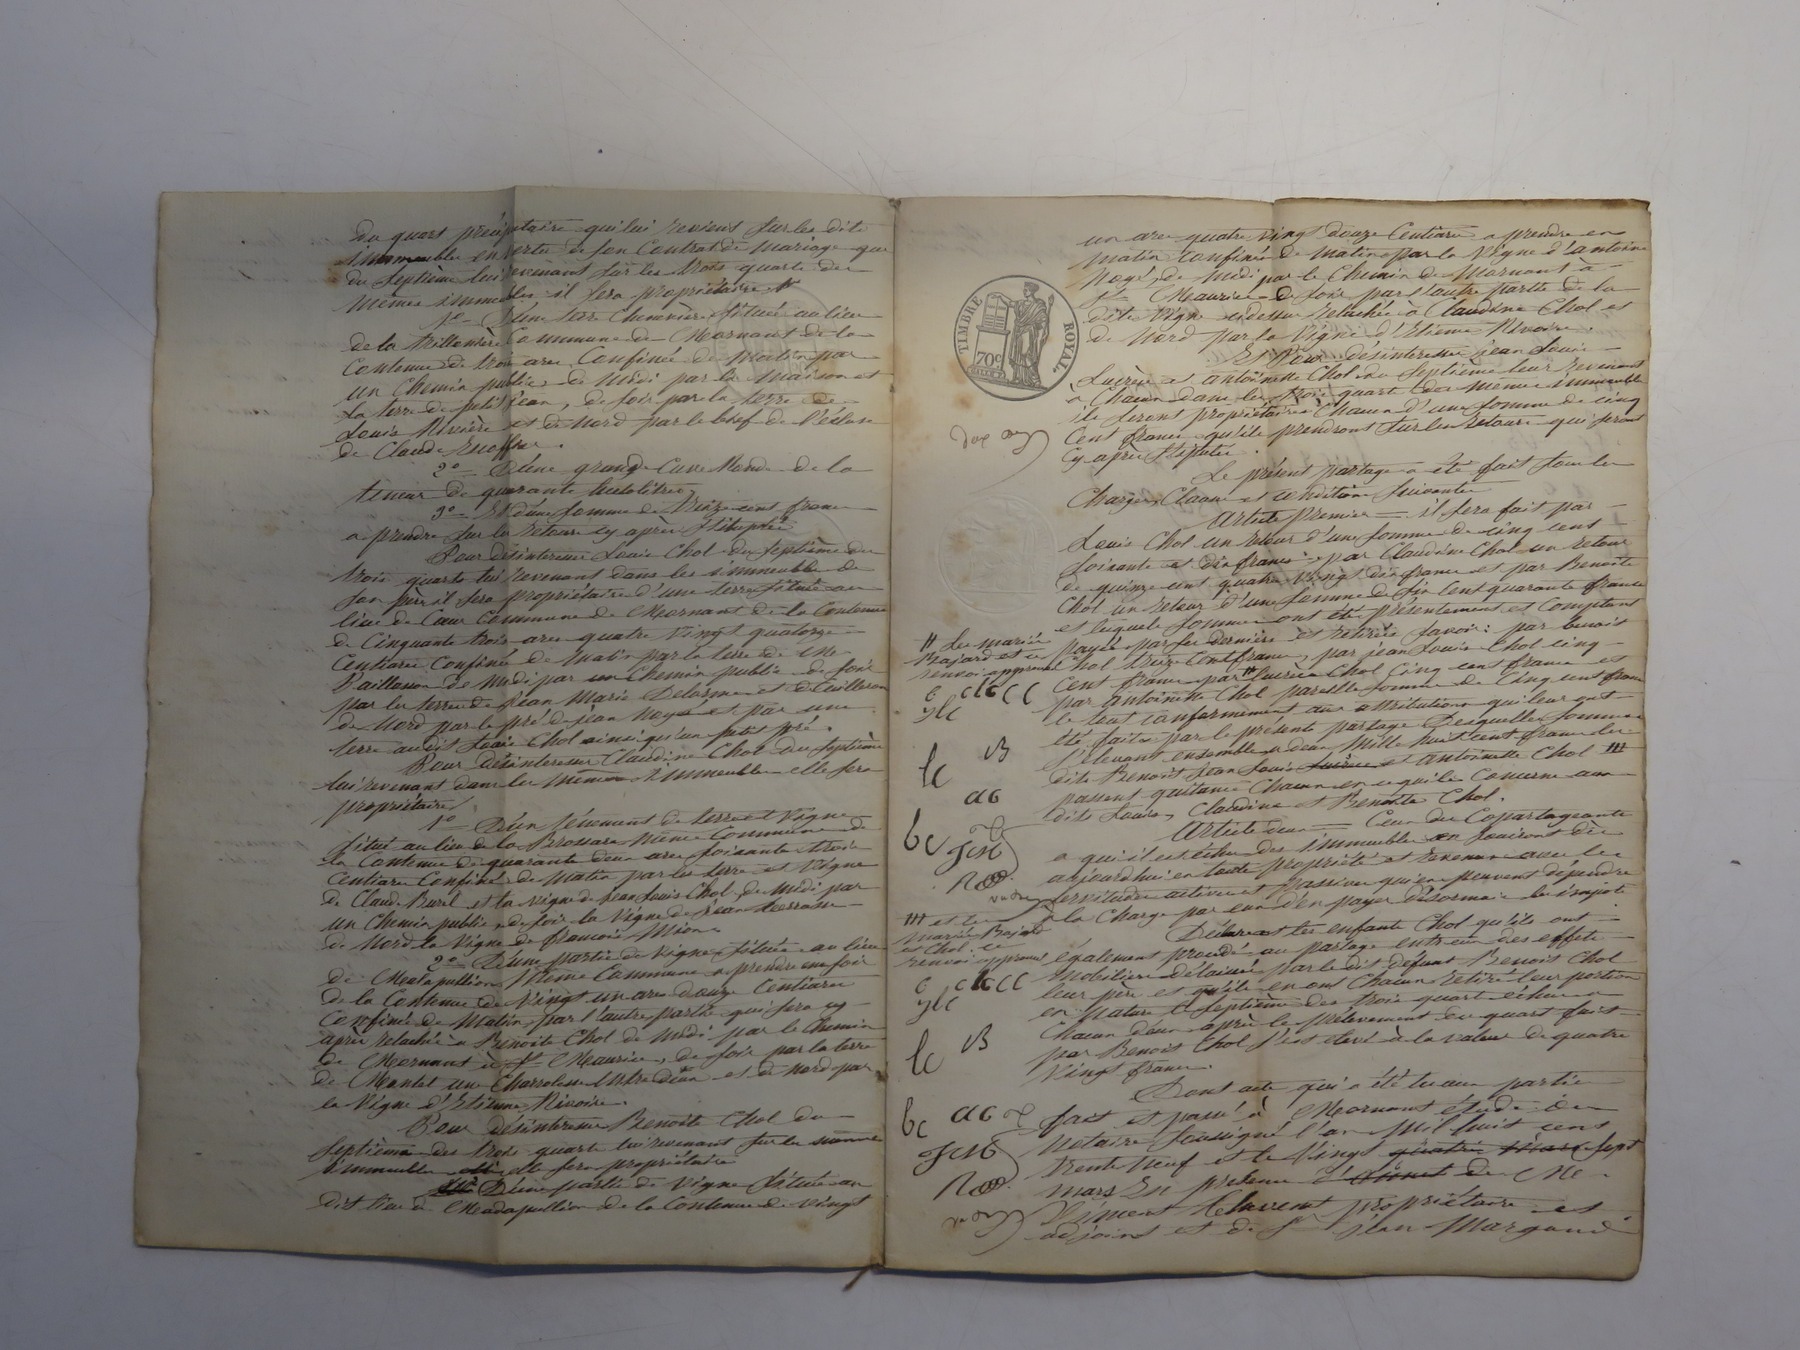 du quart préciputaire qui lui revient sur les dits
immeubles en vertu de son Contrat de mariage que
du septième lui revenant sur les trois quarts des
mêmes immeubles, il sera propriétaire
1° D'une terre Chenevière située au lieu
de la Commune de Mornant de la
Contenue de trois ares Confinée de matin par
un Chemin public, de midi par la maison et
la terre de petit jean, de soir par la terre de
Louis Rivoire et de Nord par le bief de l'écluse
de Claude
2° D'une grande Cuve de la
teneur de quarante hectolitres
3° Et d'une somme de treize cent francs
a prendre sur les retours cy après stipulés
Pour désinteresser Louis Chol du septième des
trois quarts lui revenant dans les immeubles de
son père il sera propriétaire d'une terre située au
lieu de Commune de Mornant de la Contenue
de Cinquante trois ares quatre vingt quatorze
Centiares Confinée de matin par la terre de
de midi par un Chemin public de soir
par les terres de Jean Marie Delorme et
de Nord par le pré de jean Noyé et par une
terre audit Louis Chol ainsi qu'un petit pré.
Pour désinteresser Claudine Chol du septième
lui revenant dans les mêmes immeubles elle sera
propriétaire
1° D'un ténement de terre et Vigne
situé au lieu de la Brossare même Commune de
la Contenue de quarante deux ares soixante trois
Centiares Confiné de matin par les terre et Vigne
de Claude Burel et la vigne de Jean Louis Chol, de midi par
un Chemin public, de soir la Vigne de Jean
de Nord la Vigne de françois
2° D'une partie de Vigne située au lieu
de même Commune a prendre en soir
de la Contenue de vingt un ares douze Centiares
Confinée de Matin par l'autre partie qui sera cy
après relachée a Benoite Chol de midi par le Chemin
de Mornant à St Maurice, de soir par la terre
de et de Nord par
la Vigne d'Etienne Rivoire.
Pour désinteresser Benoîte Chol du
septième des trois quarts lui revenant sur les mêmes
immeubles elle sera propriétaire
D'une partie de Vigne située au
dit lieu de de la Contenue de vingt
un are quatre vingt douze Centiares a prendre en
matin Confinée de matin par la Vigne d'antoine
Noyé, de midi par le Chemin de Mornant à
St Maurice de soir par l'autre partie de la
dite Vigne cidessus relachée à Claudine Chol et
de Nord par la Vigne d'Etienne Rivoire.
Et Pour désinteresser jean Louis
Lucrèce et antoinette Chol du septième leur revenant
à Chacun dans les trois quarts des mêmes immeubles
ils seront propriétaires Chacun d'une somme de cinq
Cent francs qu'ils prendront sur les retours qui seront
Cy après stipulés.
Le présent partage a été fait sous les
Charges, Clauses et conditions suivantes
Article Premier il sera fait par
Louis Chol un retour d'une somme de cinq cent
soixante et dix francs par Claudine Chol un retour
de quinze cent quatre vingt dix francs et par Benoîte
Chol un retour d'une somme de six cent quarante francs
et lesquels sommes ont été présentement et Comptant
payées par ces derniers et retirées savoir: par benoit
Chol treize Cent francs, par jean Louis Chol cinq
Cent francs par Lucrèce Chol Cinq cent francs et
par antoinette Chol pareille somme de Cinq cent francs
le tout conformement aux attributions qui leur ont
été faites par le présent partage Desquelles sommes
s'élevant ensemble a deux mille huit cent francs les
dits Benoit Jean Louis Lucrèce et antoinette Chol
passent quittance Chacun en ce qui le Concerne aux
dits Louis, Claudine et Benoîte Chol.
Article deux Ceux des Copartageants
a qui il est échu des immeubles en jouiront dès
aujourd'hui en toute propriété et revenus avec les
servitudes actives et passives qui en peuvent dépendre
a la Charge par eux d'en payer désormais les impôts
Déclarent les enfants Chol qu'ils ont
également procédé au partage entr'eux des effets
mobiliers délaissés par le dit défunt Benoit Chol
leur père et qu'ils en ont Chacun retiré leur portion
en nature le septième des trois quart échu a
Chacun deux après le prélèvement du quart fait
par Benoit Chol s'est élevé à la valeur de quatre
vingt francs.
Dont acte qui a été lu aux parties
fait et passé à Mornant étude du
notaire soussigné l'an mil huit cent
trente neuf et le vingt quatre Mars sept
mars En présence d' de Me
Climent Clurent propriétaire et
adjoint et de Sr Jean Margand
TIMBRE ROYAL.
70c
les mariés
Bajard et ce
renvoi approuvé
et les
mariés Bajard
et Chol. ce
renvoi approuvé